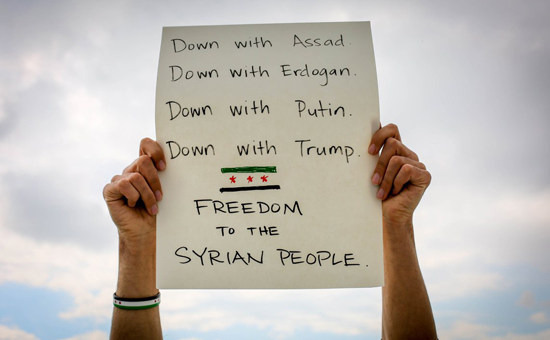 Down with Assad.
Down with Erdogan.
Down with Putin.
Down with Trump.
FREEDOM
TO THE
SYRIAN PEOPLE.